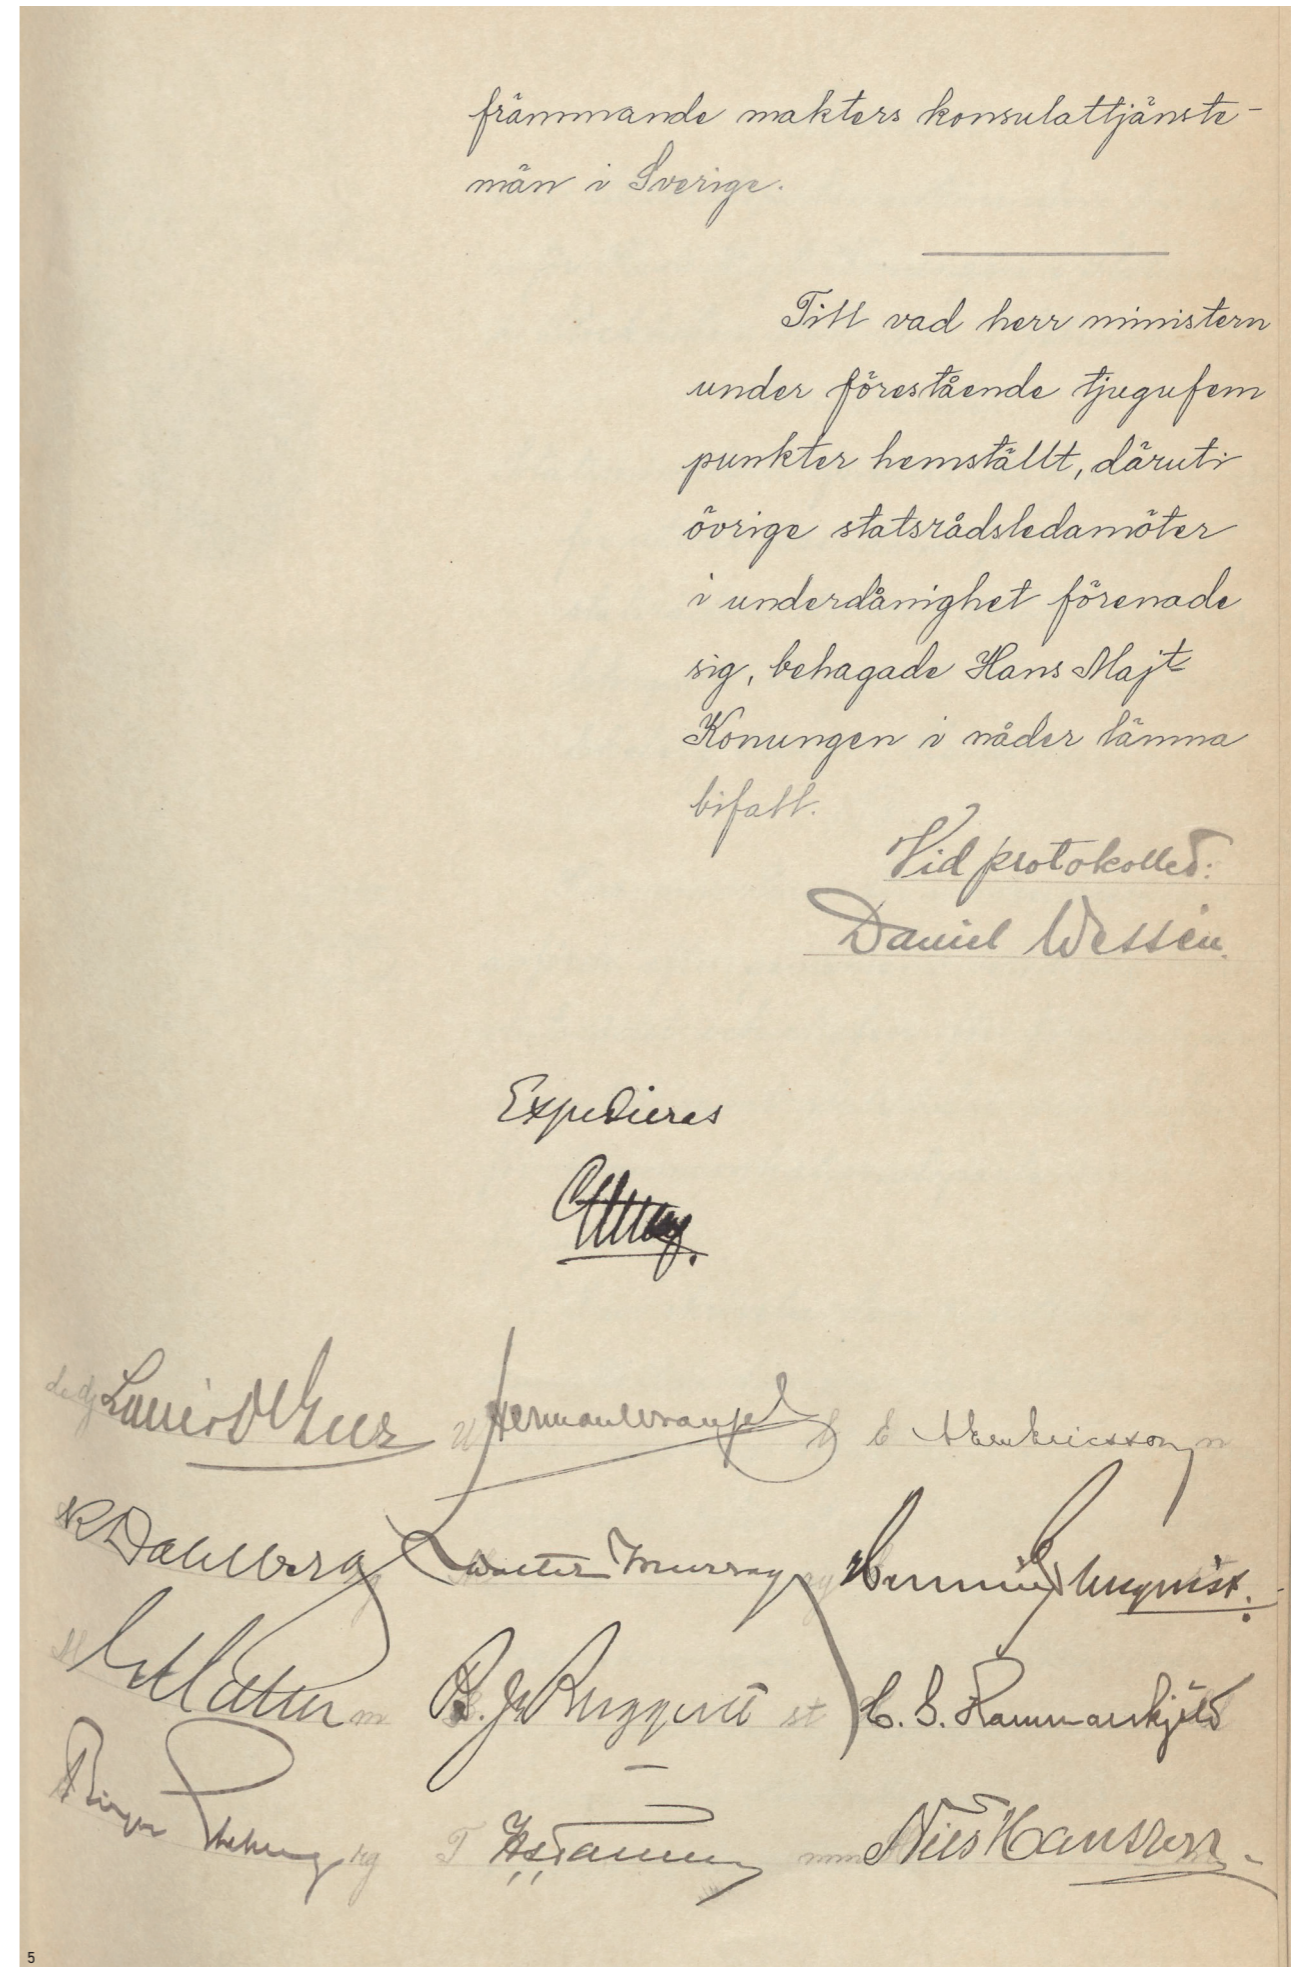 främmande makters konsulattjänste-
män i Sverige.
Till vad herr ministern
under förestående tjugufem
punkter hemställt, däruti
övrige statsrådsledamöter
i underdånighet förenade
sig, behagade Hans Majt
Konungen i nåder lämna
bifall.
Vid protokollet:
Daniel Wessén.
Expedieras
Louis De Geer Herman Wrangel Henricsson
K Dahlberg Walter Murray Henning Elmquist.
B. J:son Bergqvist C. G. Hammarskjöld
Birger Ekeberg Nils Hansson
5